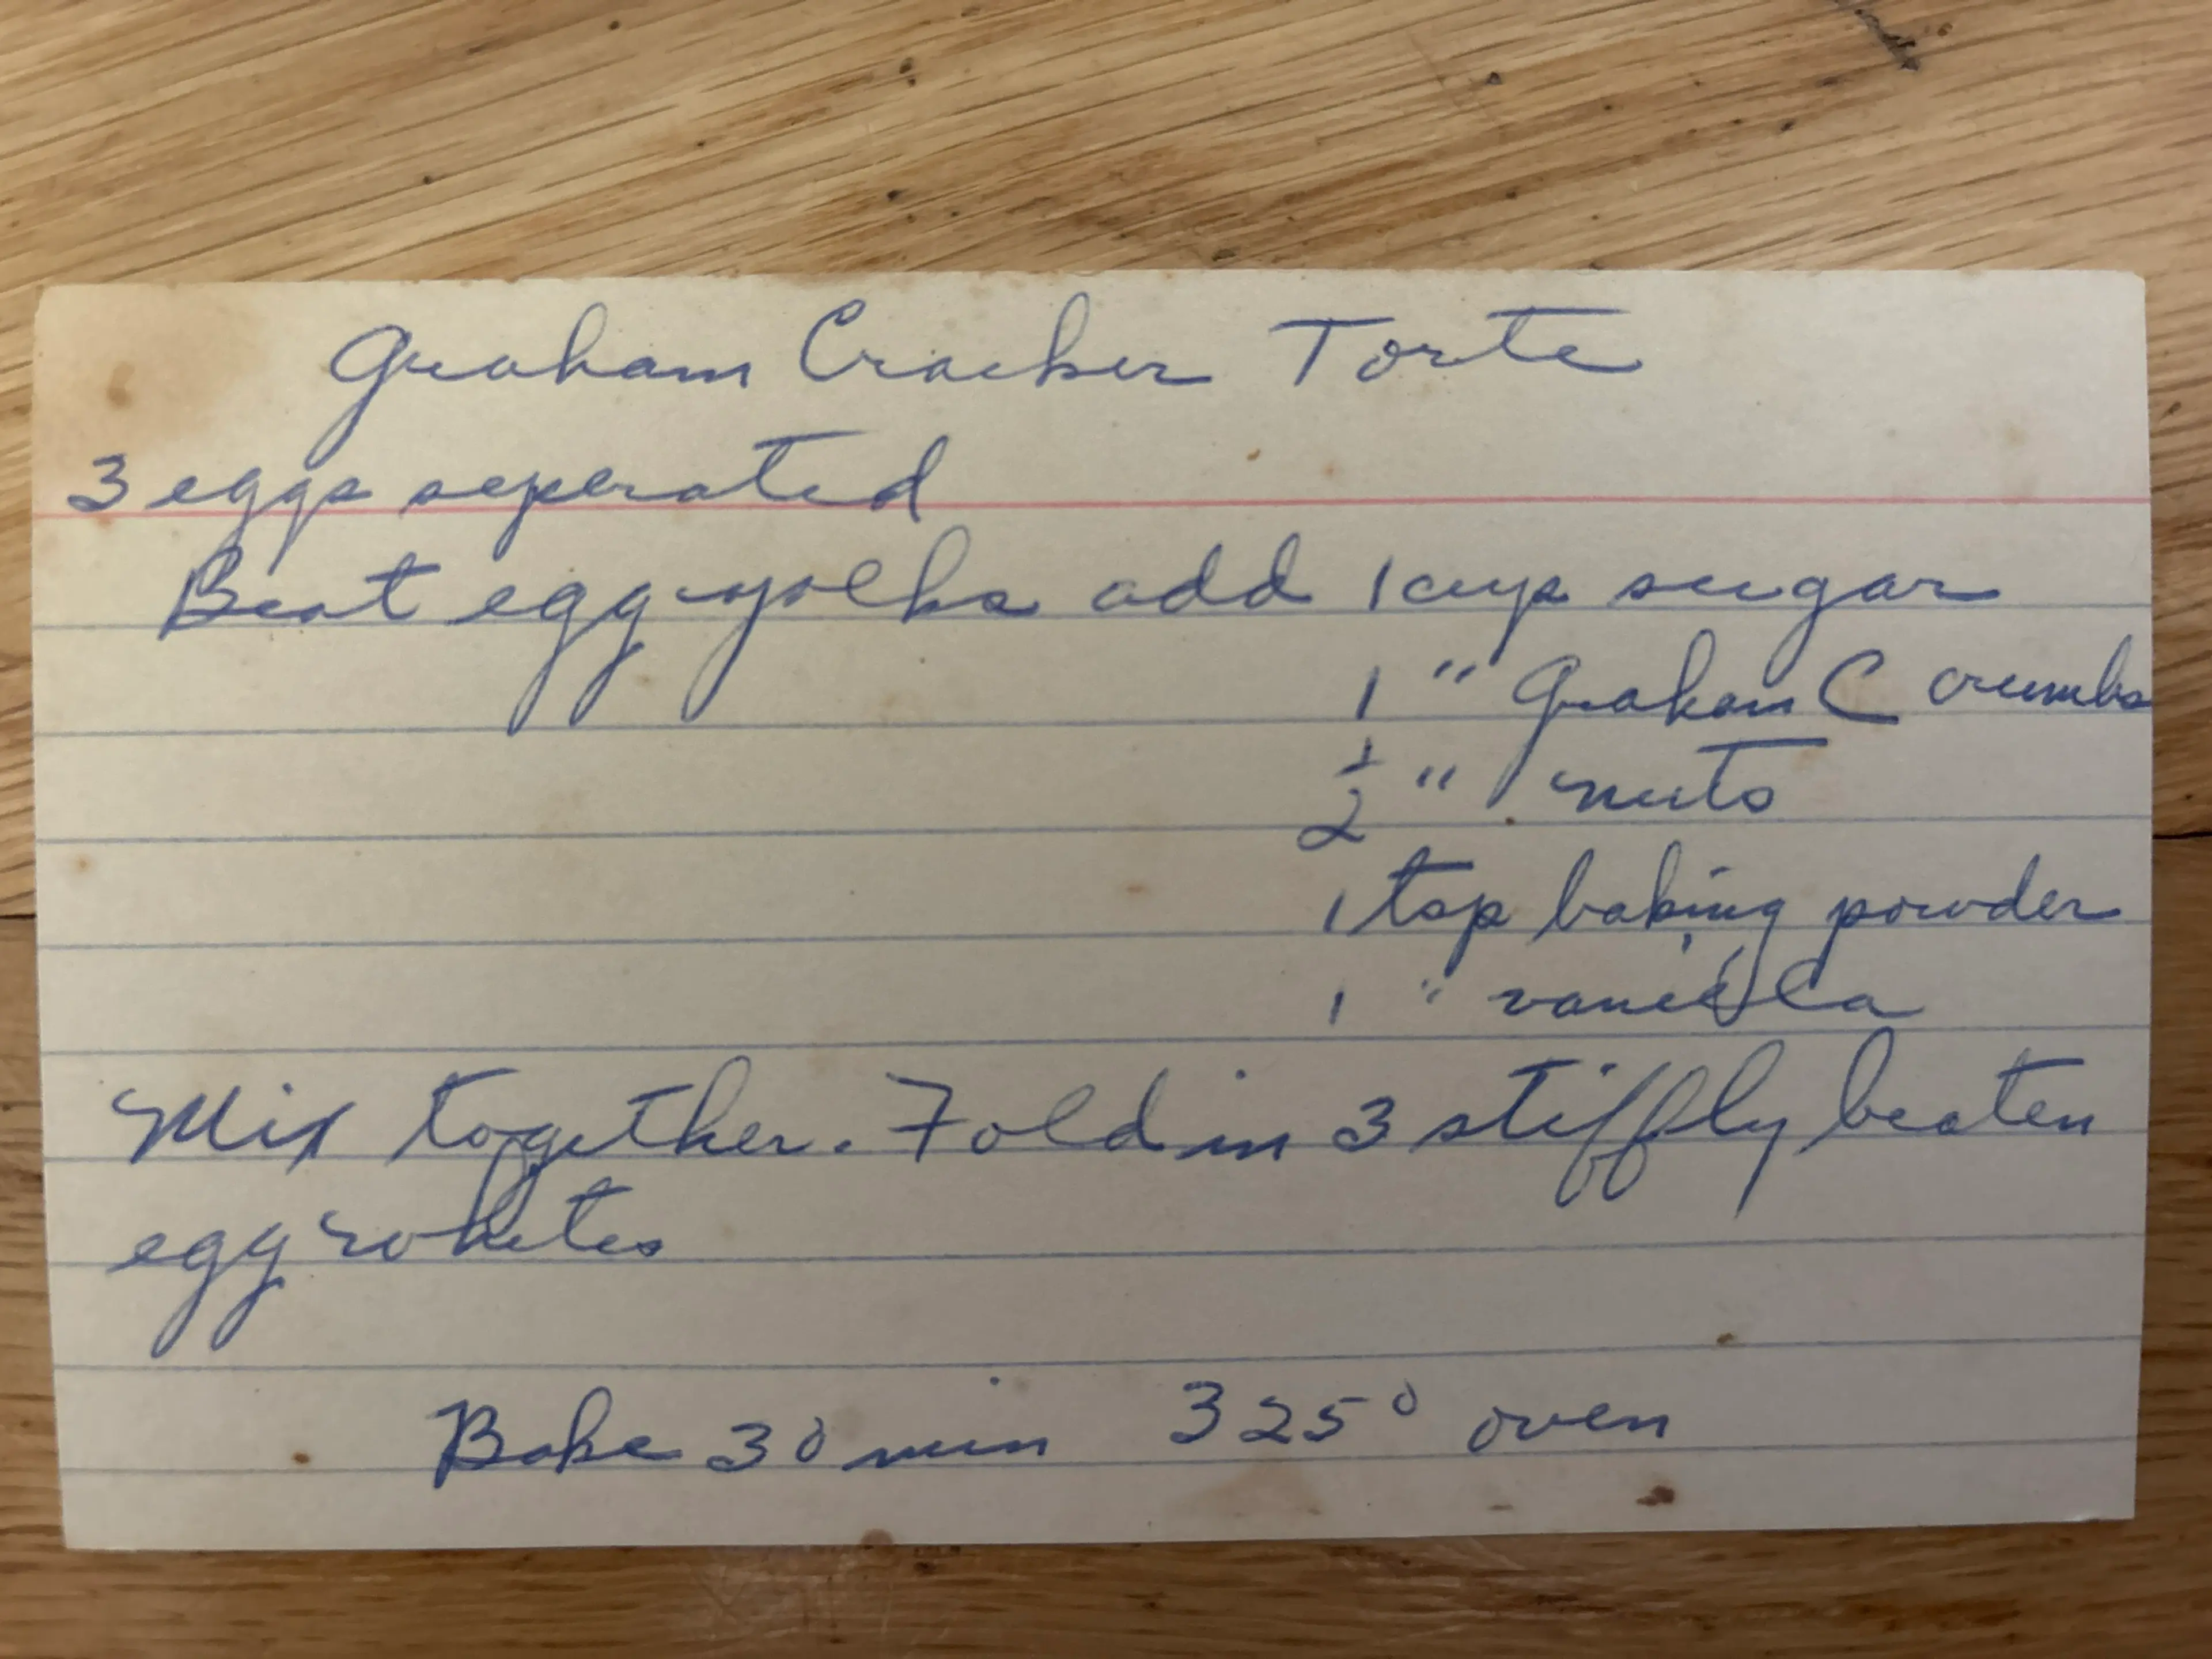 Graham Cracker Torte
3 eggs seperated
Beat egg yolks add 1 cup sugar
1 " Graham C crumbs
1/2 " nuts
1 tsp baking powder
1 " vanilla
Mix together. Fold in 3 stiffly beaten
egg whites
Bake 30 min 325° oven